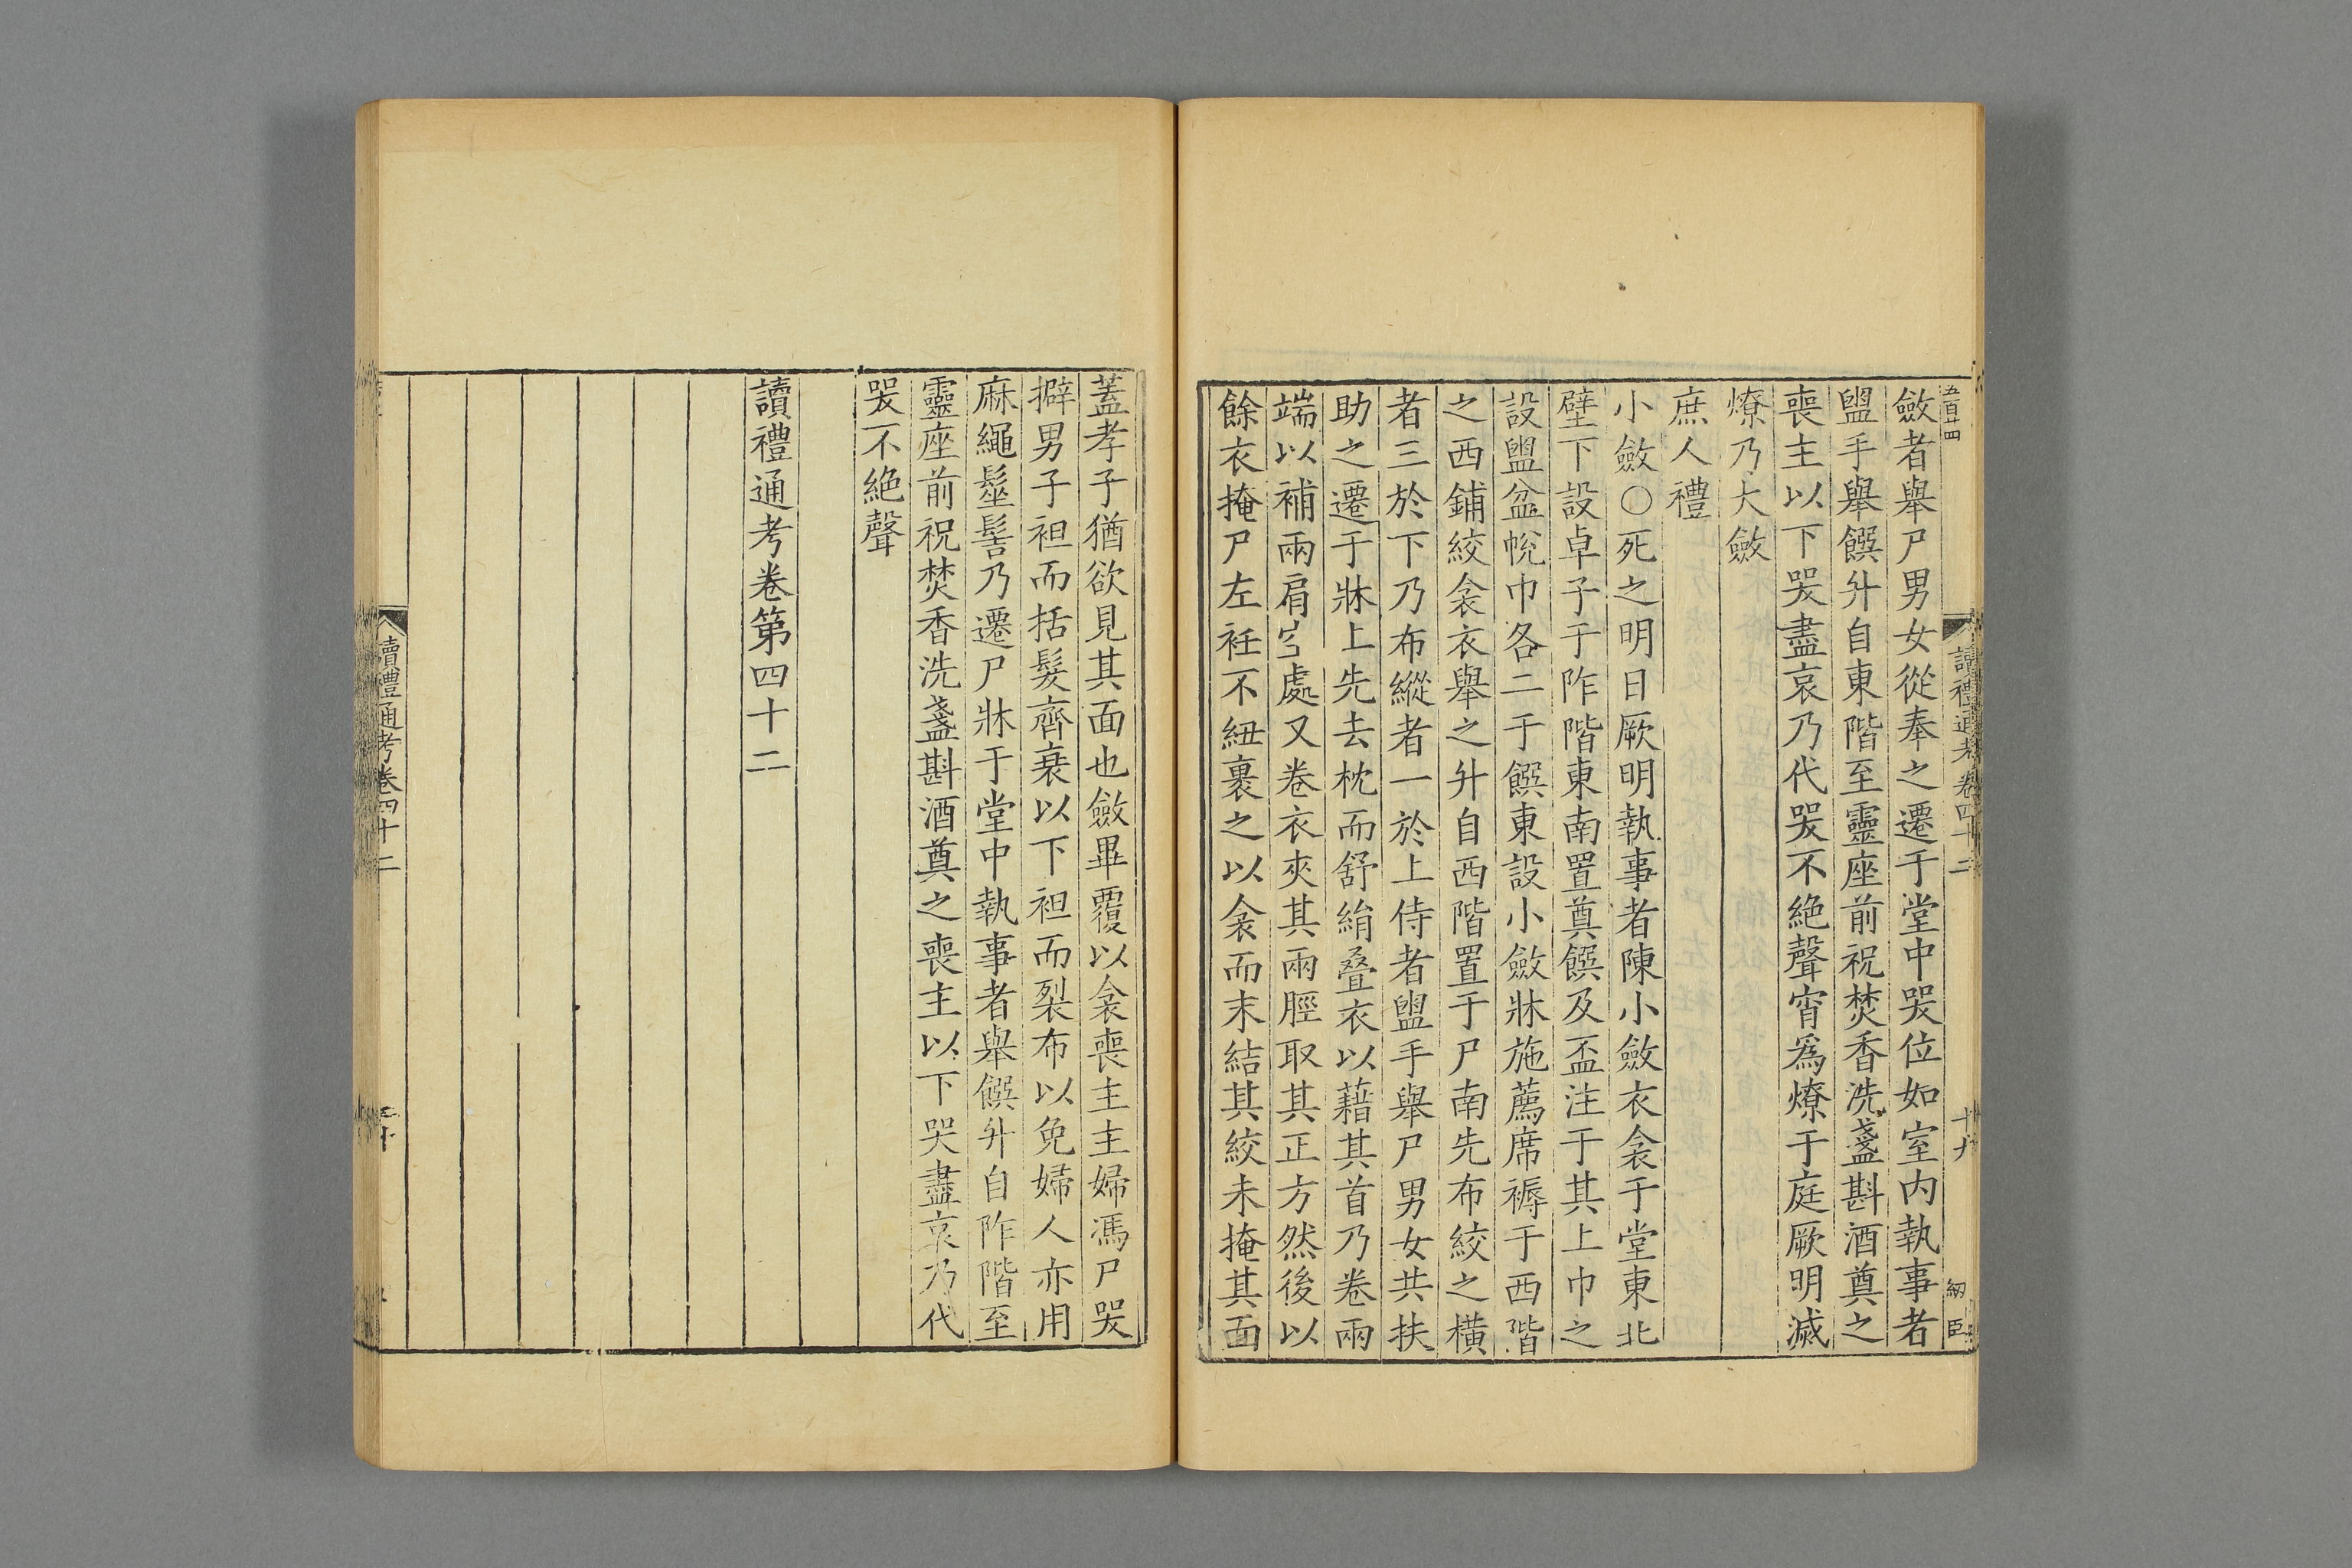 五百廿四
讀禮通考卷四十二
十九
紉臣
斂者舉尸男女從奉之遷于堂中哭位如室内執事者
盥手舉饌升自東階至靈座前祝焚香洗盞斟酒奠之
喪主以下哭盡哀乃代哭不絶聲宵爲燎于庭厥明滅
燎乃大斂
庶人禮
小斂○死之明日厥明執事者陳小斂衣衾于堂東北
壁下設卓子于阼階東南置奠饌及盃注于其上巾之
設盥盆帨巾各二于饌東設小斂牀施薦席褥于西階
之西鋪絞衾衣舉之升自西階置于尸南先布絞之橫
者三於下乃布縱者一於上侍者盥手舉尸男女共扶
助之遷于牀上先去枕而舒絹叠衣以藉其首乃卷兩
端以補兩肩空處又卷衣夾其兩脛取其正方然後以
餘衣掩尸左衽不紐裹之以衾而未結其絞未掩其面
蓋孝子猶欲見其面也斂畢覆以衾喪主主婦馮尸哭
擗男子袒而括髮齊衰以下袒而裂布以免婦人亦用
麻繩髽髻乃遷尸牀于堂中執事者舉饌升自阼階至
靈座前祝焚香洗盞斟酒奠之喪主以下哭盡哀乃代
哭不絶聲
讀禮通考卷第四十二
讀禮通考卷四十二
二十